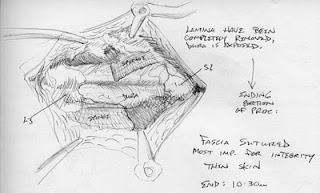 LAMINA HAVE BEEN
COMPLETELY REMOVED,
DURA IS EXPOSED.
SPONGE
S1
DURA
L3
SPONGE
ENDING
PORTION
OF PROC:
FASCIA SUTURED
MOST IMP. FOR INTEGRITY
THEN SKIN
END: 10:30am